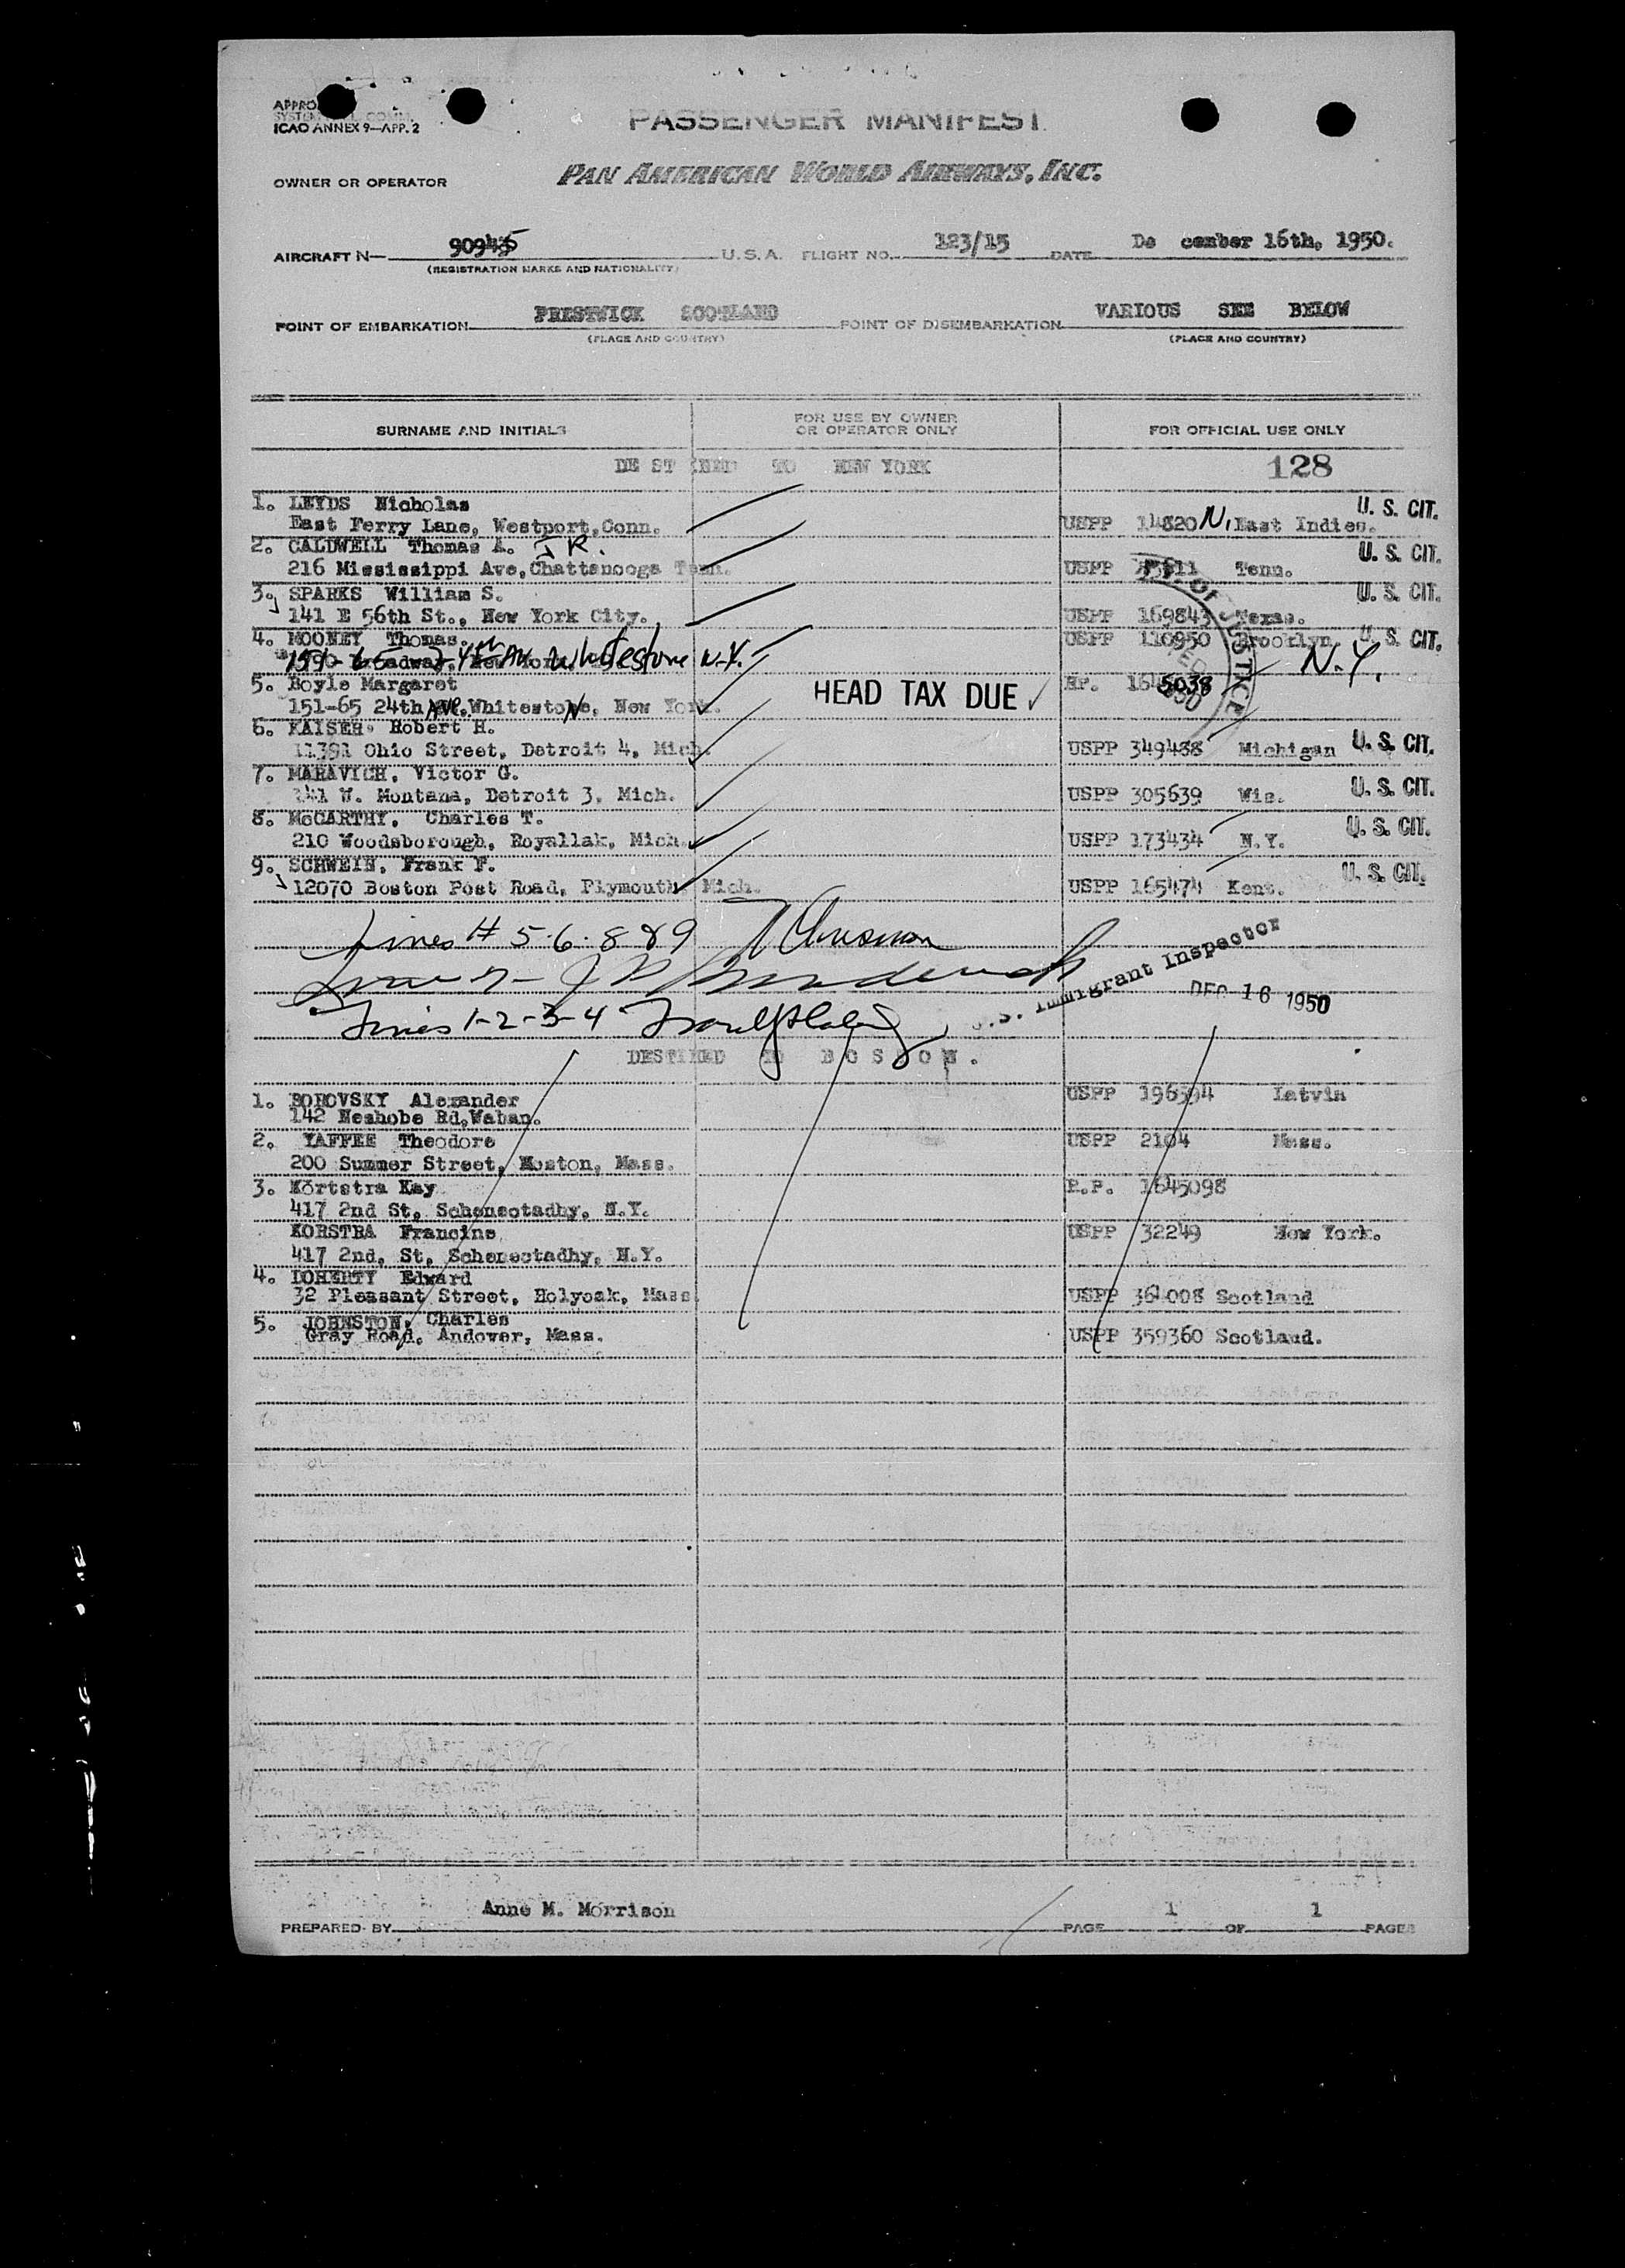 APPRO
SYSTEM COMM.
ICAO ANNEX 9—APP. 2
PASSENGER MANIFEST
OWNER OR OPERATOR
PAN AMERICAN WORLD AIRWAYS, INC.
AIRCRAFT N— 90945 U.S.A. FLIGHT NO. 123/15 DATE De cember 16th, 1950.
(REGISTRATION MARKS AND NATIONALITY)
POINT OF EMBARKATION PRESTWICK SCOTLAND POINT OF DISEMBARKATION VARIOUS SEE BELOW
(PLACE AND COUNTRY) (PLACE AND COUNTRY)
SURNAME AND INITIALS FOR USE BY OWNER OR OPERATOR ONLY FOR OFFICIAL USE ONLY
DE ST INED TO NEW YORK 128
1. LEYDS Nicholas U. S. CIT.
East Ferry Lane, Westport, Conn. USPP 14820 N. East Indies.
2. CALDWELL Thomas A. JR. U. S. CIT.
216 Mississippi Ave, Chattanooga Tenn. USPP Tenn.
3. SPARKS William S. U. S. CIT.
141 E 56th St., New York City. USPP 169843 Texas.
4. MOONEY Thomas. USPP 110950 Brooklyn U. S. CIT.
Whitestone N.Y. N.Y.
5. Boyle Margaret HEAD TAX DUE RP. 1645038
151-65 24th Ave. Whitestone, New York.
6. KAISER. Robert H.
11391 Ohio Street, Detroit 4, Mich. USPP 349438 Michigan U. S. CIT.
7. MARAVICH, Victor G.
141 W. Montana, Detroit 3, Mich. USPP 305639 Wis. U. S. CIT.
8. McCARTHY, Charles T. U. S. CIT.
210 Woodsborough, Royallak, Mich. USPP 173434 N.Y.
9. SCHWEIN, Frank F. U. S. CIT.
12070 Boston Post Road, Plymouth Mich. USPP 165474 Kent.
Lines # 5-6-8 & 9
U.S. Immigrant Inspector
DEC 16 1950
Lines 1-2-3-4
DESTINED TO B O S T O N .
1. BOROVSKY Alexander USPP 196394 Latvia
142 Neshobe Rd, Waban.
2. YAFFEE Theodore USPP 2104 Mass.
200 Summer Street, Boston, Mass.
3. Kortstra Kay R.P. 1645098
417 2nd St, Schenectadhy, N.Y.
KORSTRA Francine USPP 32249 New York.
417 2nd, St, Schenectadhy, N.Y.
4. DOHERTY Edward
32 Pleasant Street, Holyoak, Mass. USPP 364008 Scotland
5. JOHNSTON, Charles
Gray Road, Andover, Mass. USPP 359360 Scotland.
PREPARED BY Anne M. Morrison PAGE 1 OF 1 PAGES